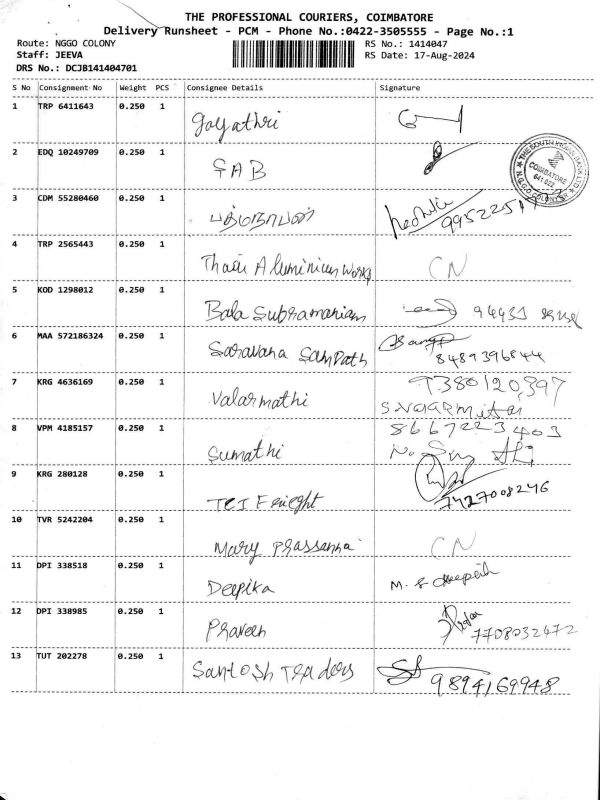 THE PROFESSIONAL COURIERS, COIMBATORE
Delivery Runsheet - PCM - Phone No.:0422-3505555 - Page No.:1
Route: NGGO COLONY RS No.: 1414047
Staff: JEEVA RS Date: 17-Aug-2024
DRS No.: DCJB141404701
S No Consignment No Weight PCS Consignee Details Signature
1 TRP 6411643 0.250 1 Gayathri
2 EDQ 10249709 0.250 1 SAB
THE SOUTH INDIAN BANK LTD
COIMBATORE
641 022
N.G.G.O COLONY BR
3 CDM 55280460 0.250 1 பத்மநாபன்
4 TRP 2565443 0.250 1 Thari Aluminium Works CN
5 KOD 1298012 0.250 1 Bala Subramaniam 94431
6 MAA 572186324 0.250 1 Saravana Sampath
8489396844
7 KRG 4636169 0.250 1 Valarmathi 9380120397
8 VPM 4185157 0.250 1 Sumathi 8667223403
9 KRG 280128 0.250 1 TCI Frieght 7427008246
10 TVR 5242204 0.250 1 Mary Prassanna CN
11 DPI 338518 0.250 1 Deepika M. S. Deepak
12 DPI 338985 0.250 1 Praveen
7708032472
13 TUT 202278 0.250 1 Santosh Traders
9894169948